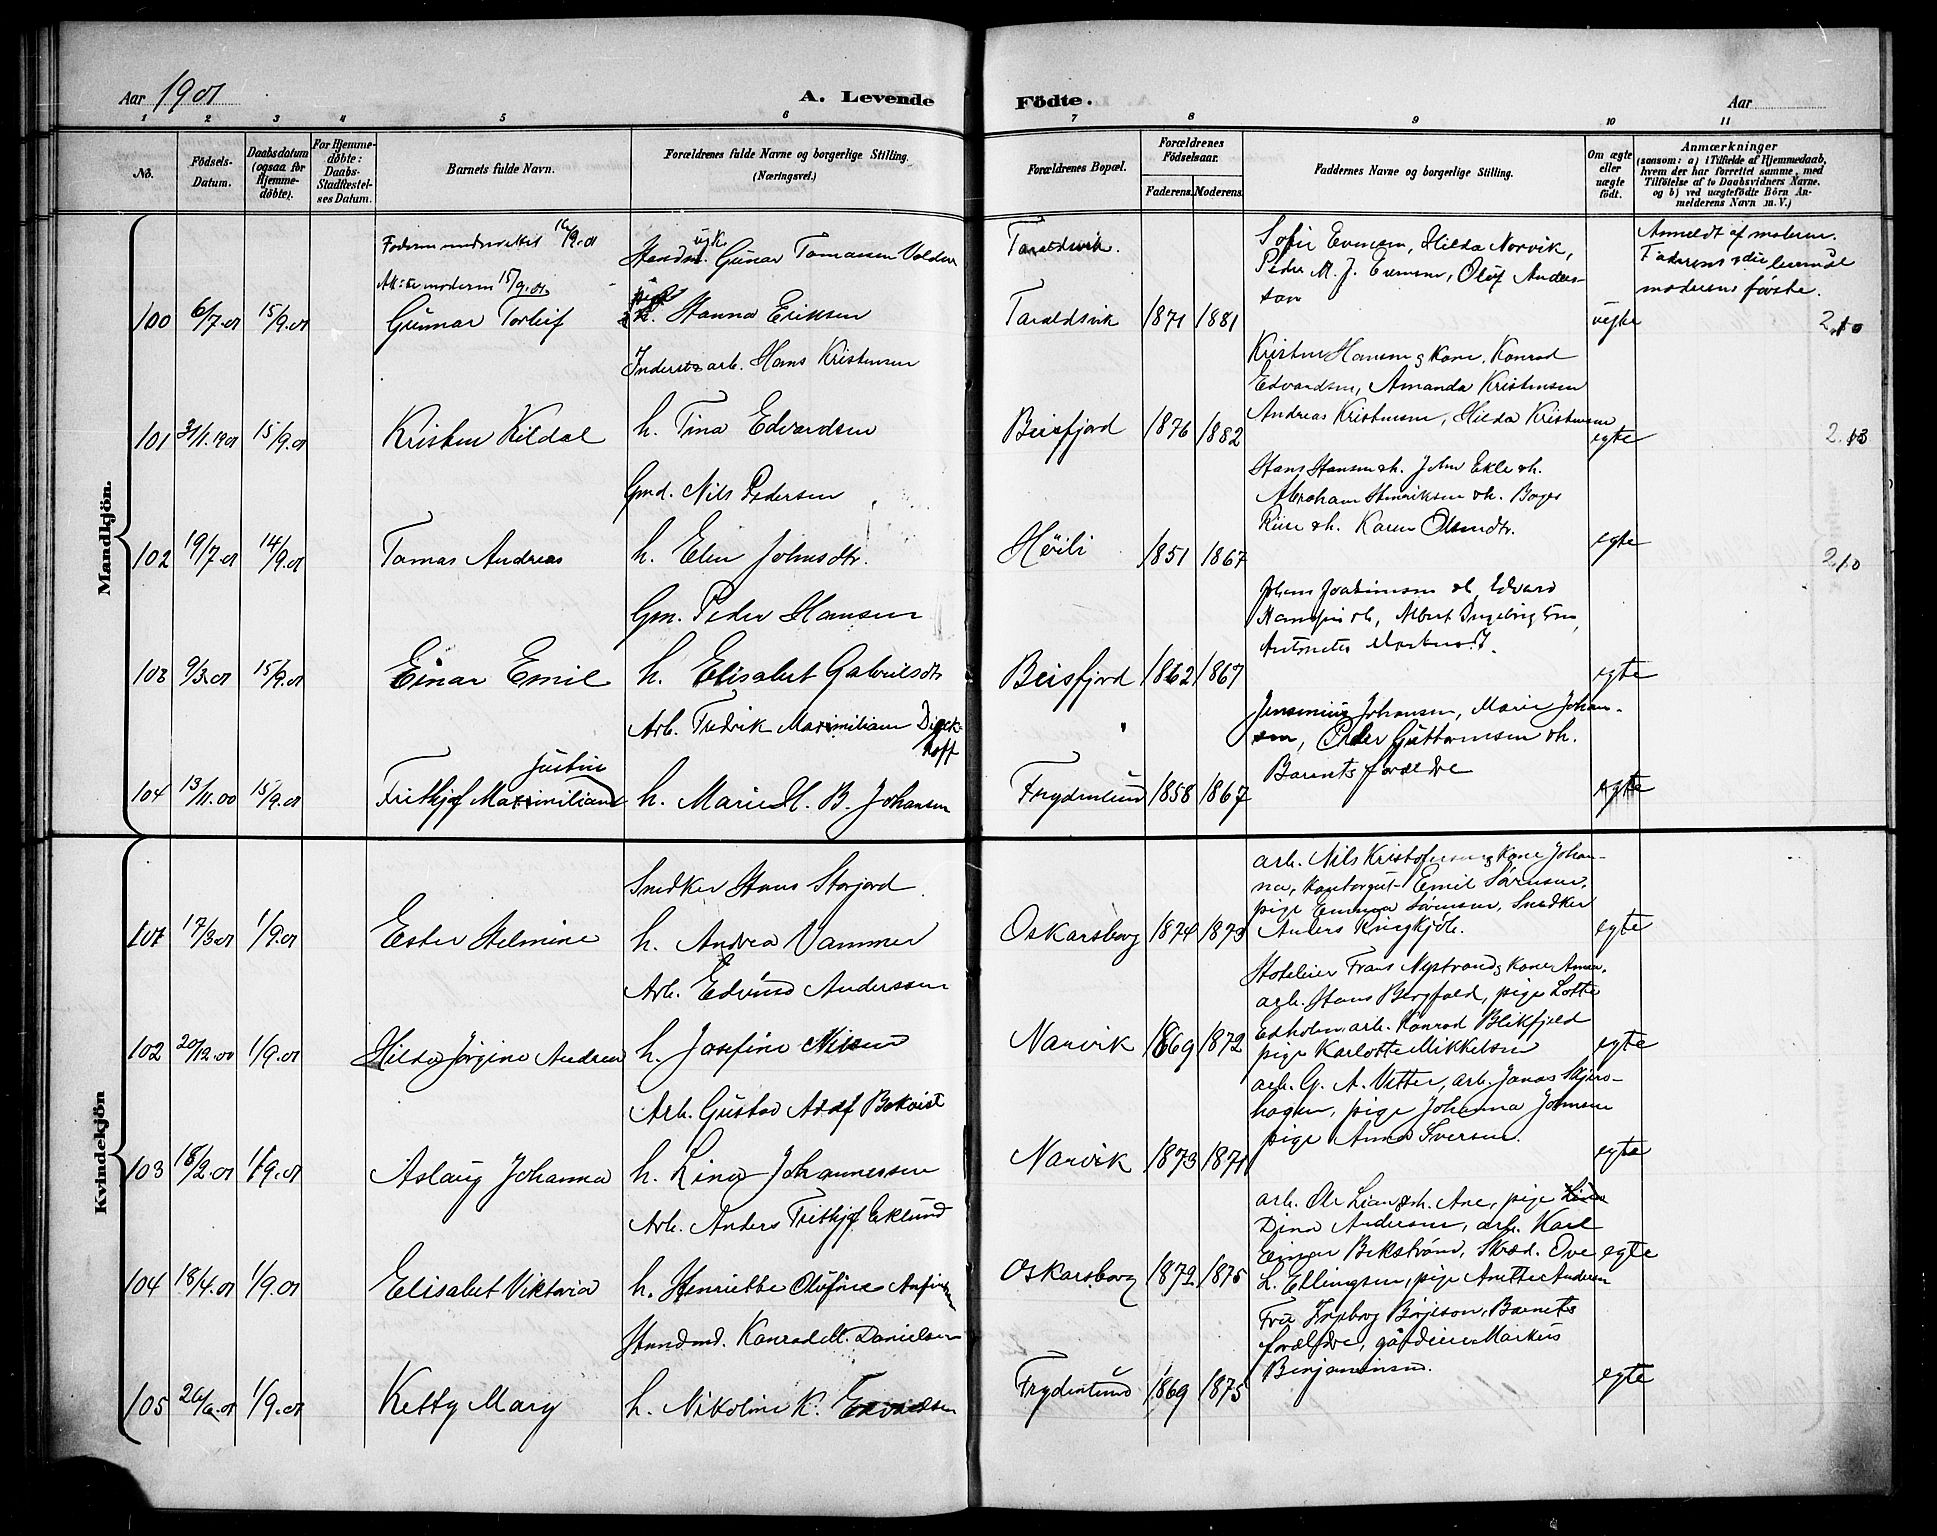 Aar 1901
A. Levende
Födte.
Aar
1 2 3 4 5 6 7 8 9 10 11
No.
Födsels-
Datum.
Daabsdatum
(ogsaa for
Hjemme-
døbte).
For Hjemme-
døbte:
Daabs-
Stadfæstel-
ses Datum.
Barnets fulde Navn.
Forældrenes fulde Navne og borgerlige Stilling.
(Næringsvei.)
Forældrenes Bopæl.
Forældrenes
Födselsaar.
Faderens. Moderens.
Faddernes Navne og borgerlig Stilling.
Om ægte
eller
uægte
født.
Anmærkninger
(saasom: a) i Tilfælde af Hjemmedaab,
hvem der har forrettet samme, med
Tilföielse af to Daabsvidners Navne.
og b) ved uægtefödte Börn An-
melderens Navn m. V.)
Mandkjön.
Faderen underrettet 16/9.01
Att: til moderen 15/9.01
100 6/7.01 15/9.01 Gunnar Torleif
Handm. ugk. Gunar Tomassen Volden
pige Hanna Eriksen
Taraldsvik.
Taraldsvik 1871 1881
Sofie Evensen, Hilda Norvik,
Peder M. J. Evensen, Oluf Anders-
son
uegte
Anmeldt af moderen.
Faderens 2det leiermål
moderens første.
2.10
101 31/1.1901 15/9.01 Kristen Kildal
Inderstarb. Hans Kristensen
h. Tina Edvardsen
Beisfjord 1876 1882
Kristen Hansen g kone, Konrad
Edvardsen, Amanda Kristensen
Andreas Kristensen, Hilda Kristensen
egte
2.13
102 19/7.01 14/9.01 Tomas Andreas
Gmd. Nils Pedersen
h. Elen Johnsdtr.
Høili 1851 1867
Hans Hansen & h. John Ekle & h.
Abraham Henriksen & h. Borger
Riise & h. Karen Olsendtr.
egte
2.10
103 9/3.01 15/9.01 Einar Emil
Gm. Peder Hansen
h. Elisabet Gabrielsdtr
Beisfjord 1862 1867
Johans Joakimsen & h, Edvard
Hansen & h, Albert Ingebrigtsen,
egte
104 13/11.00 15/9.01 Frithjof Maximilian Justin
Arb. Fredrik Maximilian Dyck-
hoff
h. Marie H. B. Johansen
Frydenlund 1858 1867
Jensenius Johansen, Marie Johan-
sen, Peder Guttormsen & h.
Barnets forældre
egte
Kvindekjön
101 17/3.01 1/9.01 Ester Helmine
Snedker Hans Storjord.
h. Andrea Vammer
Oskarsborg 1874 1873
arb. Nils Kristofersen g kone Johan-
na, Emil Sørensen,
pige Emma Sørensen, Snedker
Anders Ringkjøb.
egte
102 20/12.00 1/9.01 Hilda Jørgine Andrea
Arb. Edvind Anderssen
h. Josefine Nilsen
Narvik 1869 1872
Hoteleier Frans Nystrand g kone Anna.
arb. Hans Bergfald, pige Lotte
Edholm, arb. Konrad Blikfjeld
pige Karlotte Mikkelsen
egte
103 18/2.01 1/9.01 Aslaug Johanna
Arb. Gustav Adolf Bokvist
h. Lina Johannessen
Narvik 1873 1871
arb. G. A. Vetter, arb. Jonas Skjers-
hagen, pige Johanna Johnsen
pige Anna Iversen.
egte
104 18/4.01 1/9.01 Elisabet Viktoria
Arb. Anders Frithjof Eklund
h. Henriette Olufine Anfinsen
Oskarsborg 1872 1875
arb. Ole Lian & h. Ane, pige
Dina Andersen, arb. Karl
Einar Bekstrøm, Skræd. Ove
L. Ellingsen, pige Anette Andersen
egte
105 26/6.01 1/9.01 Ketty Mary
Handm. Konrad M. Danielsen
h. Nikoline K. Edvardsen
Frydenlund 1869 1875
Fru Ingeborg Børjeson, Barnets
forældre, gårdeier Markus
Benjaminsen.
egte